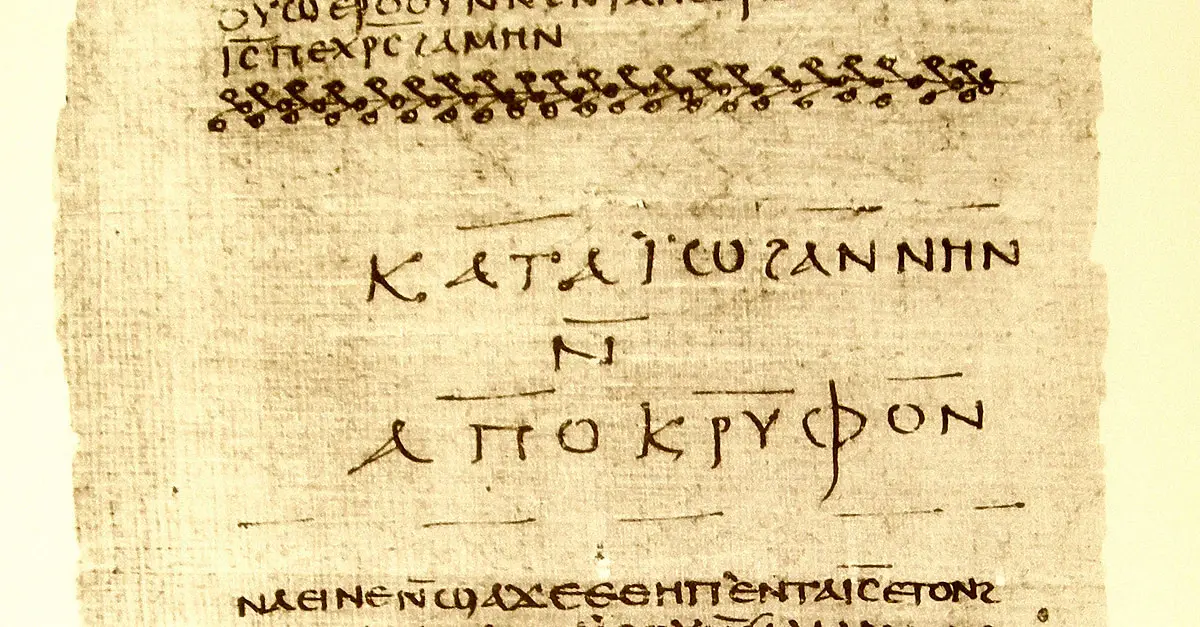 ⲟⲩⲱⲉⲣⲟⲟⲩⲛⲛⲉⲛⲧⲁⲡ
ⲓ̅ⲥ̅ⲡⲉⲭⲣ̅ⲥ̅ϩⲁⲙⲏⲛ
ⲕⲁⲧⲁⲓ̈ⲱϩⲁⲛⲛⲏⲛ
ⲛ̅
ⲁⲡⲟⲕⲣⲩⲫⲟⲛ
ⲛⲁⲉⲓⲛⲉⲛ̅ϣⲁϫⲉⲉⲑⲏⲡ`ⲉⲛⲧⲁⲓ̅ⲥ̅ⲉⲧⲟⲛϩ